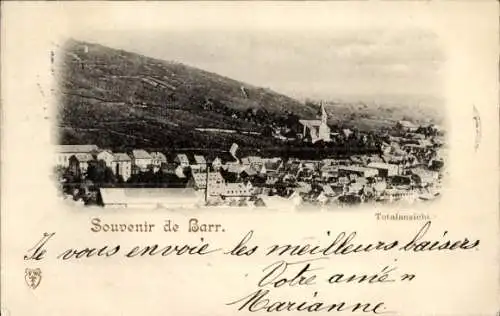 Souvenir de Barr.
Totalansicht.
Je vous envoie les meilleurs baisers.
Votre
Marianne